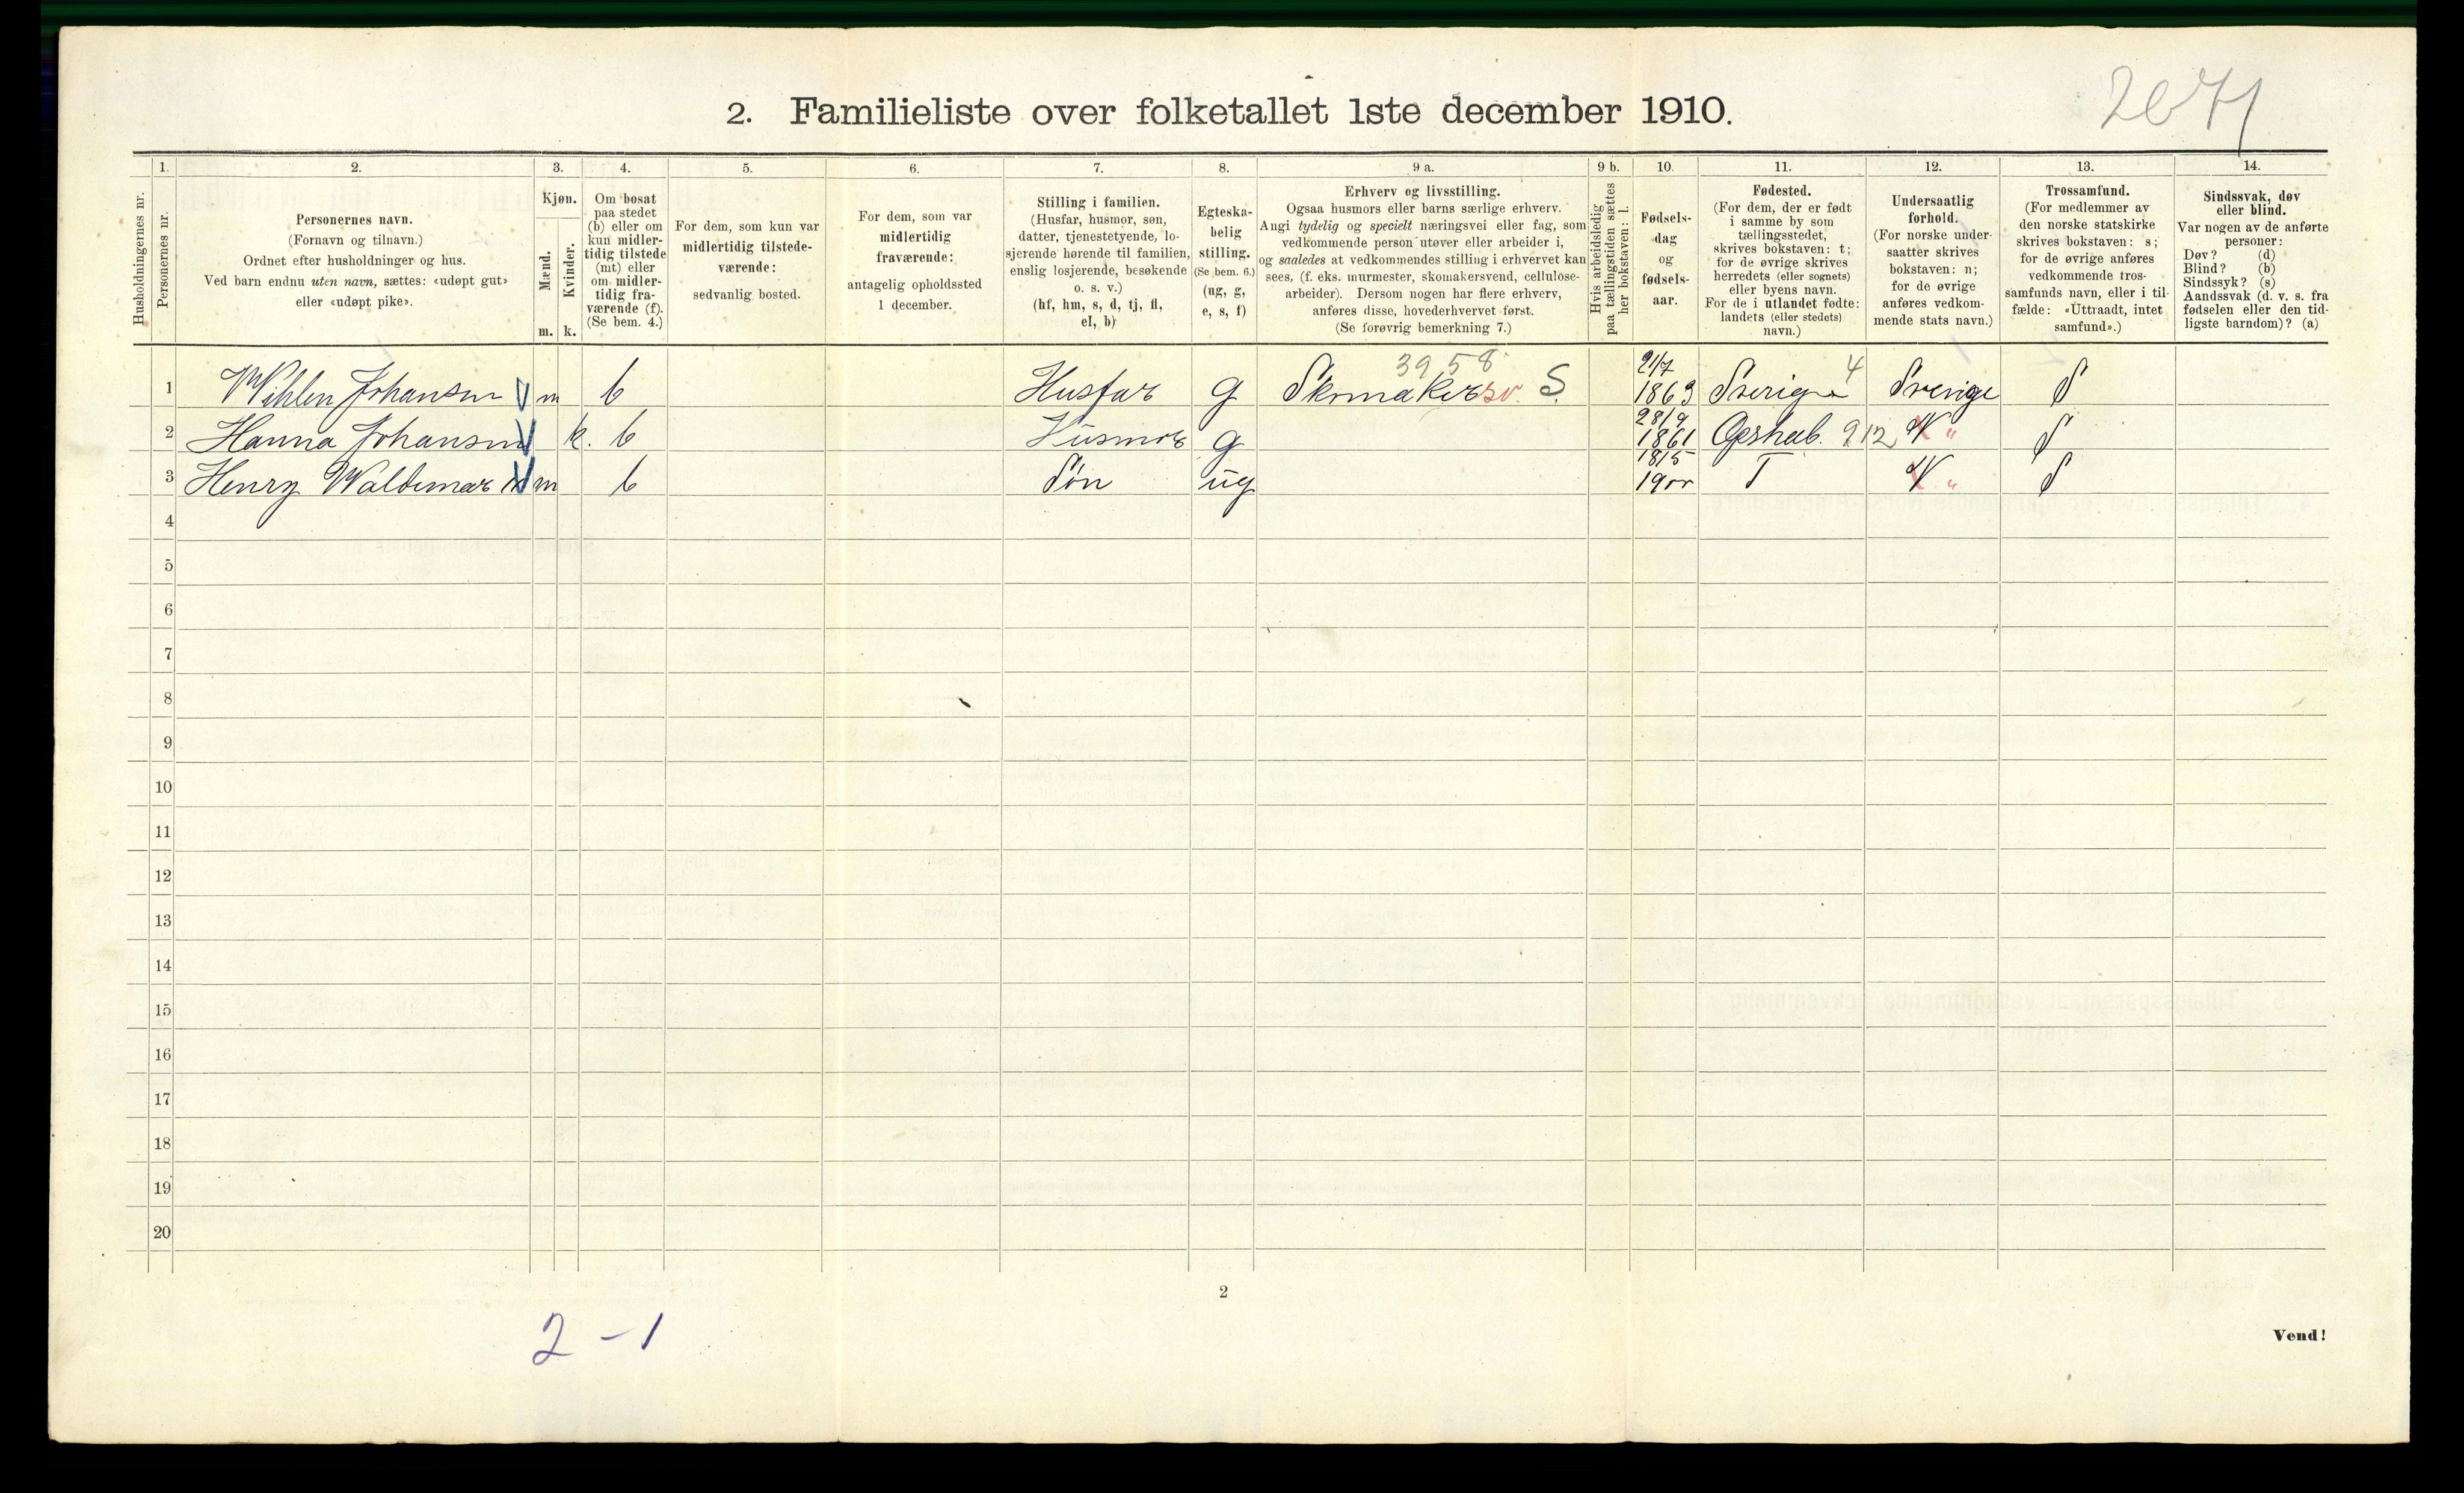 2. Familieliste over folketallet 1ste december 1910.
2071
Husholdningernes nr.
1. Personernes nr.
2. Personernes navn.
(Fornavn og tilnavn.)
Ordnet efter husholdninger og hus.
Ved barn endnu uten navn, sættes: «udøpt gut»
eller «udøpt pike».
3. Kjøn.
Mænd. m.
Kvinder. k.
4. Om bosat
paa stedet
(b) eller om
kun midler-
tidig tilstede
(mt) eller
om midler-
tidig fra-
værende (f).
(Se bem. 4.)
5. For dem, som kun var
midlertidig tilstede-
værende:
sedvanlig bosted.
6. For dem, som var
midlertidig
fraværende:
antagelig opholdssted
1 december.
7. Stilling i familien.
(Husfar, husmor, søn,
datter, tjenestetyende, lo-
sjerende hørende til familien,
enslig losjerende, besøkende
o. s. v.)
(hf, hm, s, d, tj, fl,
el, b)
8. Egteska-
belig
stilling.
(Se bem. 6.)
(ug, g,
e, s, f)
9 a. Erhverv og livsstilling.
Ogsaa husmors eller barns særlige erhverv.
Angi tydelig og specielt næringsvei eller fag, som
vedkommende person utøver eller arbeider i,
og saaledes at vedkommendes stilling i erhvervet kan
sees, (f. eks. murmester, skomakersvend, cellulose-
arbeider). Dersom nogen har flere erhverv,
anføres disse, hovederhvervet først.
(Se forøvrig bemerkning 7.)
9 b. Hvis arbeidsledig
paa tællingstiden sættes
her bokstaven: l.
10. Fødsels-
dag
og
fødsels-
aar.
11. Fødested.
(For dem, der er født
i samme by som
tællingsstedet,
skrives bokstaven: t;
for de øvrige skrives
herredets (eller sognets)
eller byens navn.
For de i utlandet fødte:
landets (eller stedets)
navn.)
12. Undersaatlig
forhold.
(For norske under-
saatter skrives
bokstaven: n;
for de øvrige
anføres vedkom-
mende stats navn.)
13. Trossamfund.
(For medlemmer av
den norske statskirke
skrives bokstaven: s;
for de øvrige anføres
vedkommende tros-
samfunds navn, eller i til-
fælde: «Uttraadt, intet
samfund».)
14. Sindssvak, døv
eller blind.
Var nogen av de anførte
personer:
Døv? (d)
Blind? (b)
Sindssyk? (s)
Aandssvak (d. v. s. fra
fødselen eller den tid-
ligste barndom)? (a)
3958
1 Wihlen Johansen m b Husfar g Skomaker sv. S. 21/7 1863 Sverige 4 Sverige S
2 Hanna Johansen k. b Husmor g 28/9 1861 912 N " S
3 Henry Waldemar m b Søn ug 18/5 1900 T N " S
4
5
6
7
8
9
10
11
12
13
14
15
16
17
18
19
20
2
2 - 1
Vend!